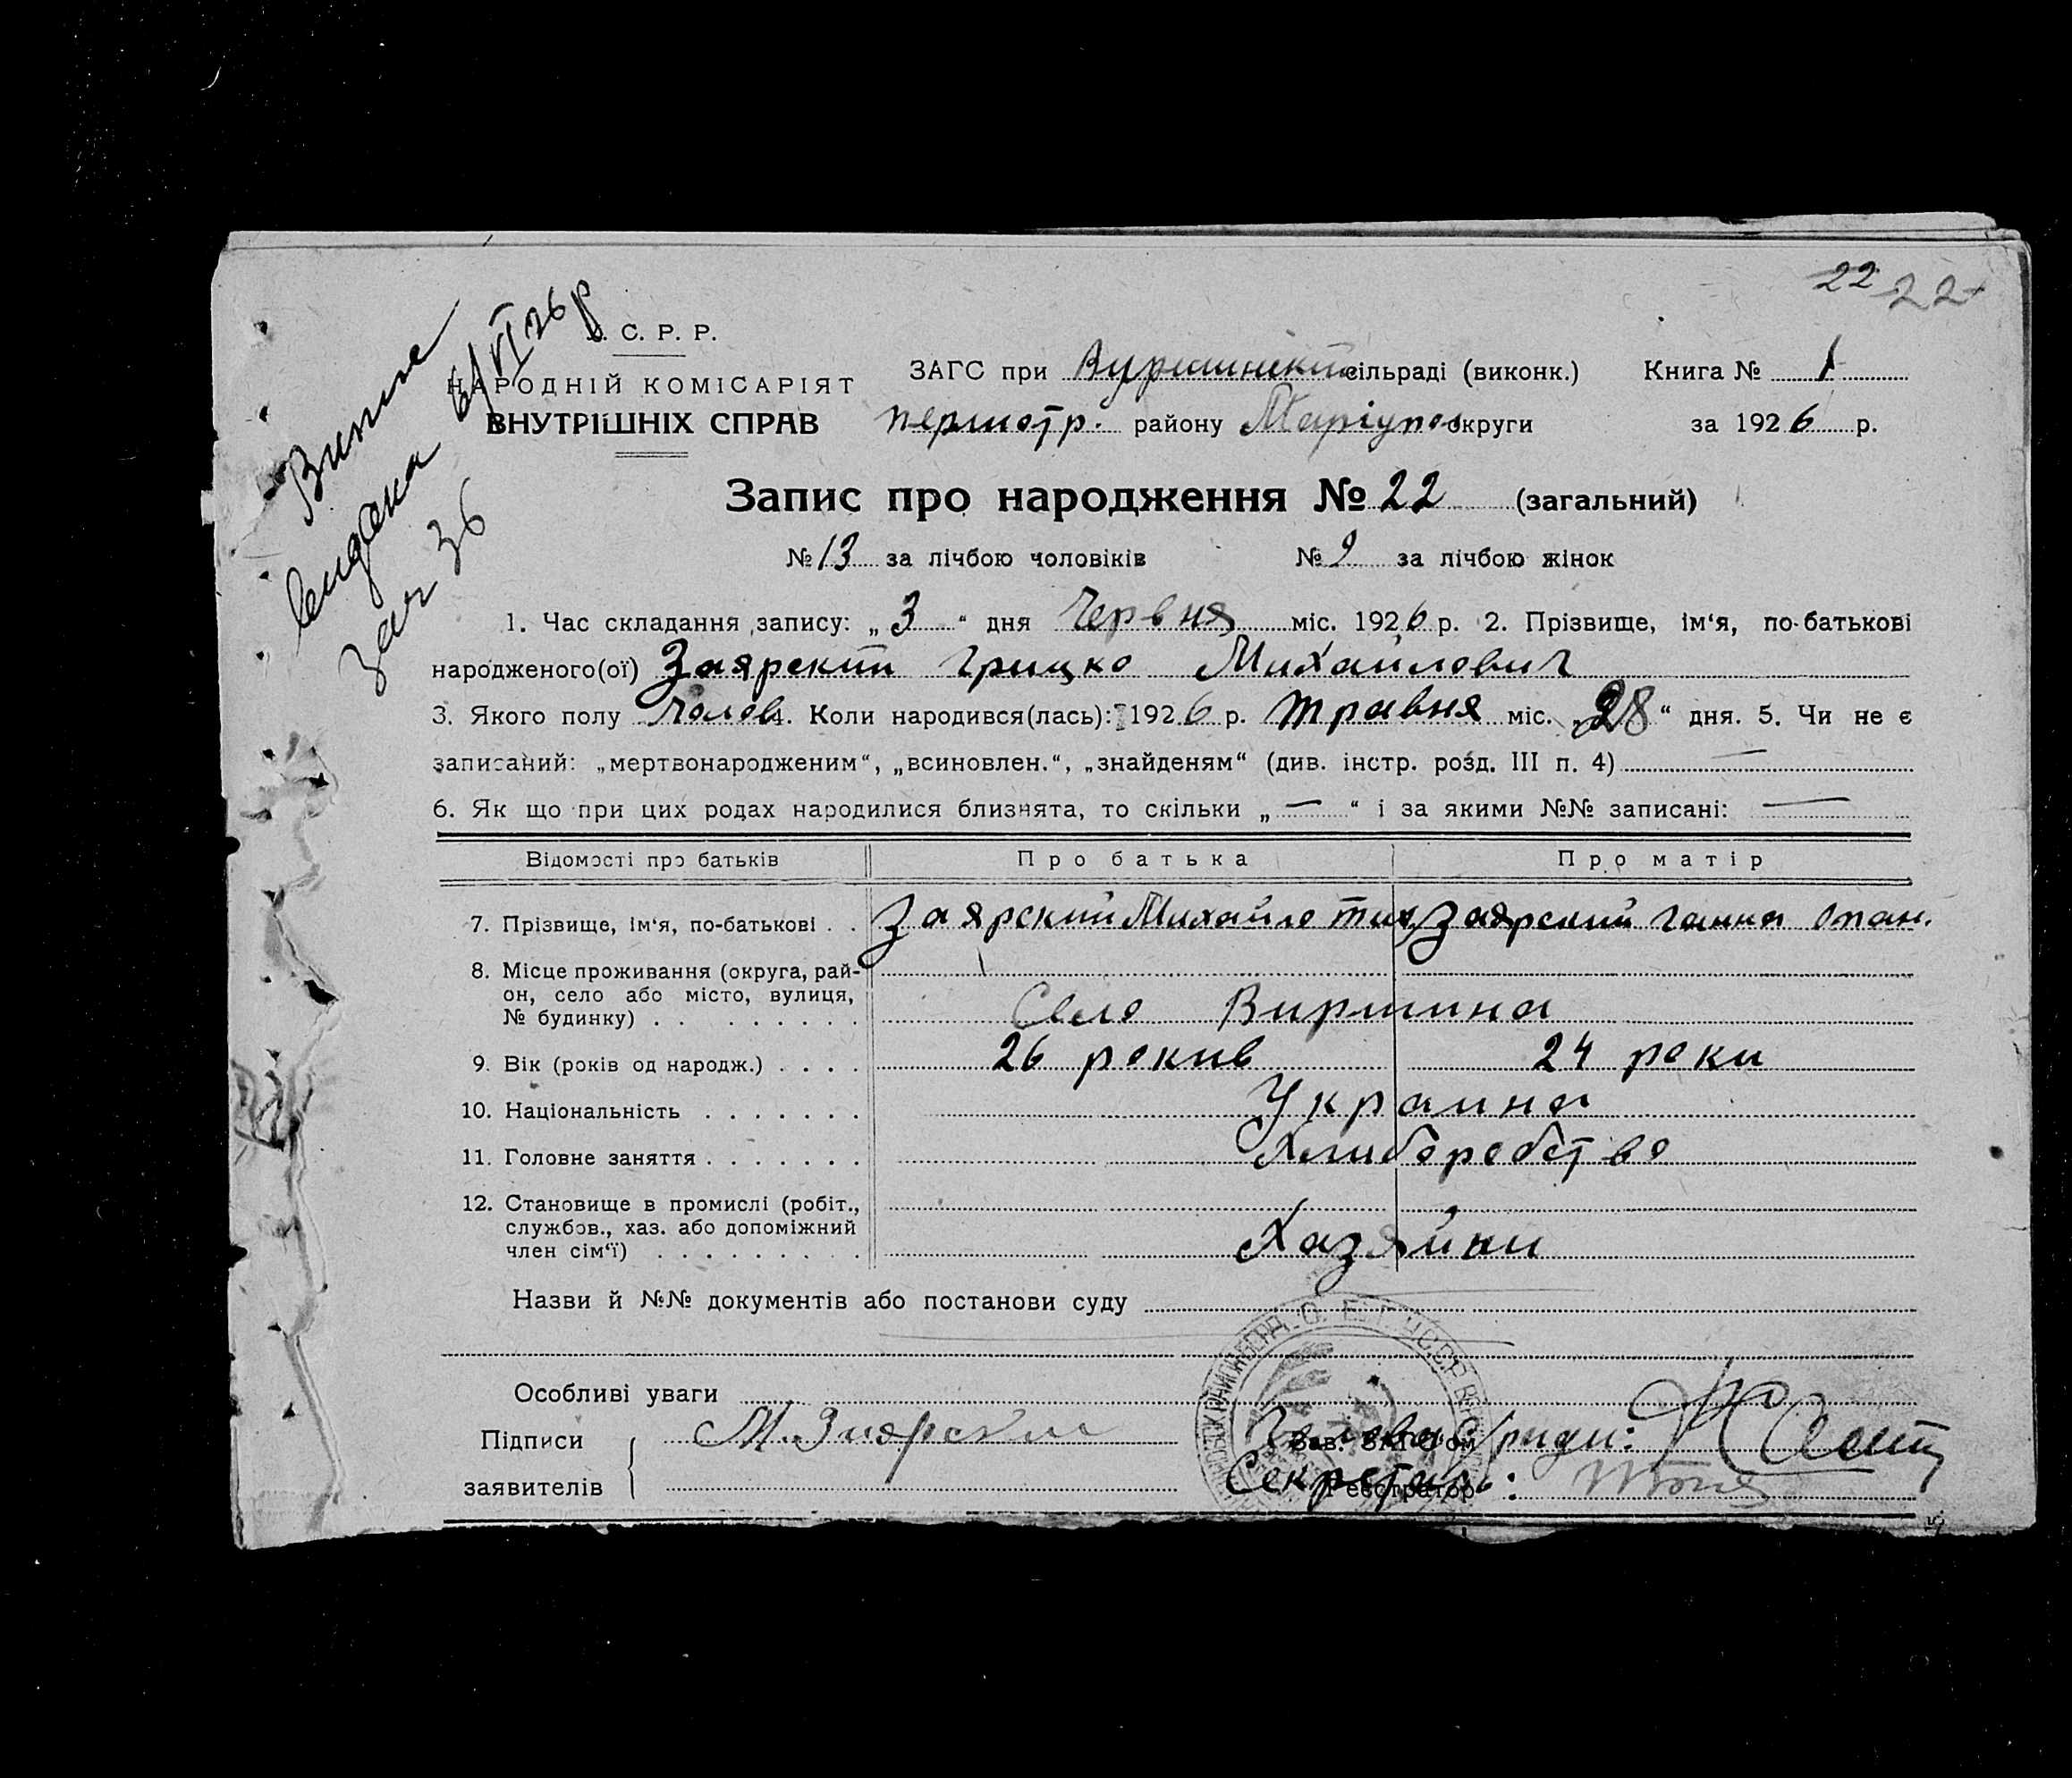 22 22
С. Р. Р.
НАРОДНІЙ КОМІСАРІЯТ
ВНУТРІШНІХ СПРАВ
Випис
видана 6/VI 26 р
за № 36
ЗАГС при сільраді (виконк.) Книга № 1
першотр. району Маріупол округи за 1926 р.
Запис про народження № 22 (загальний)
№ 13 за лічбою чоловіків № 9 за лічбою жінок
1. Час складання запису: „3“ дня Червня міс. 1926 р. 2. Прізвище, ім‘я, по-батькові
народженого(ої) Заярский Грицко Михайлович
3. Якого полу Чолов 4. Коли народився(лась): 1926 р. травня міс. „28“ дня. 5. Чи не є
записаний: „мертвонародженим“, „всиновлен.“, „знайденям“ (див. інстр. розд. III п. 4) —
6. Як що при цих родах народилися близнята, то скільки „—“ і за якими №№ записані: —
Відомості про батьків Про батька Про матір
7. Прізвище, ім‘я, по-батькові . . Заярский Михайло Тих. Заярский Ганна Опан.
8. Місце проживання (округа, рай-
он, село або місто, вулиця,
№ будинку) . . . . . . . . Село Виршина
9. Вік (років од народж.) . . . . 26 рокив 24 роки
10. Національність . . . . . . . Украина
11. Головне заняття . . . . . . . Хлиборобство
12. Становище в промислі (робіт.,
службов., хаз. або допоміжний
член сім‘ї) . . . . . . . . . Хазяйни
Назви й №№ документів або постанови суду
Особливі уваги
Підписи М. Заярский Зав. ЗАГС‘ом Голова с/ради:
заявителів Реєстратор Секретарь: